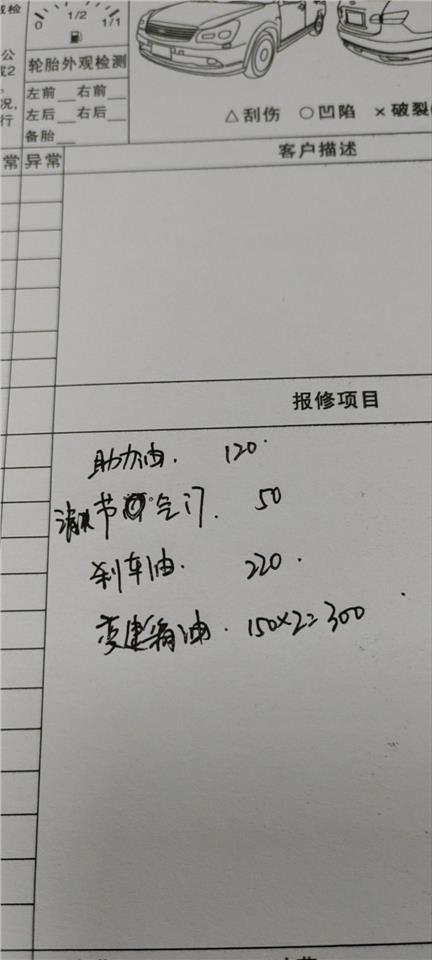 0 1/2 1/1
轮胎外观检测
左前__ 右前__
左后__ 右后__
备胎__
△刮伤 ○凹陷 ×破裂
常 异常 客户描述
报修项目
助力油. 120.
清洗节气门. 50
刹车油. 220.
变速箱油. 150×2=300